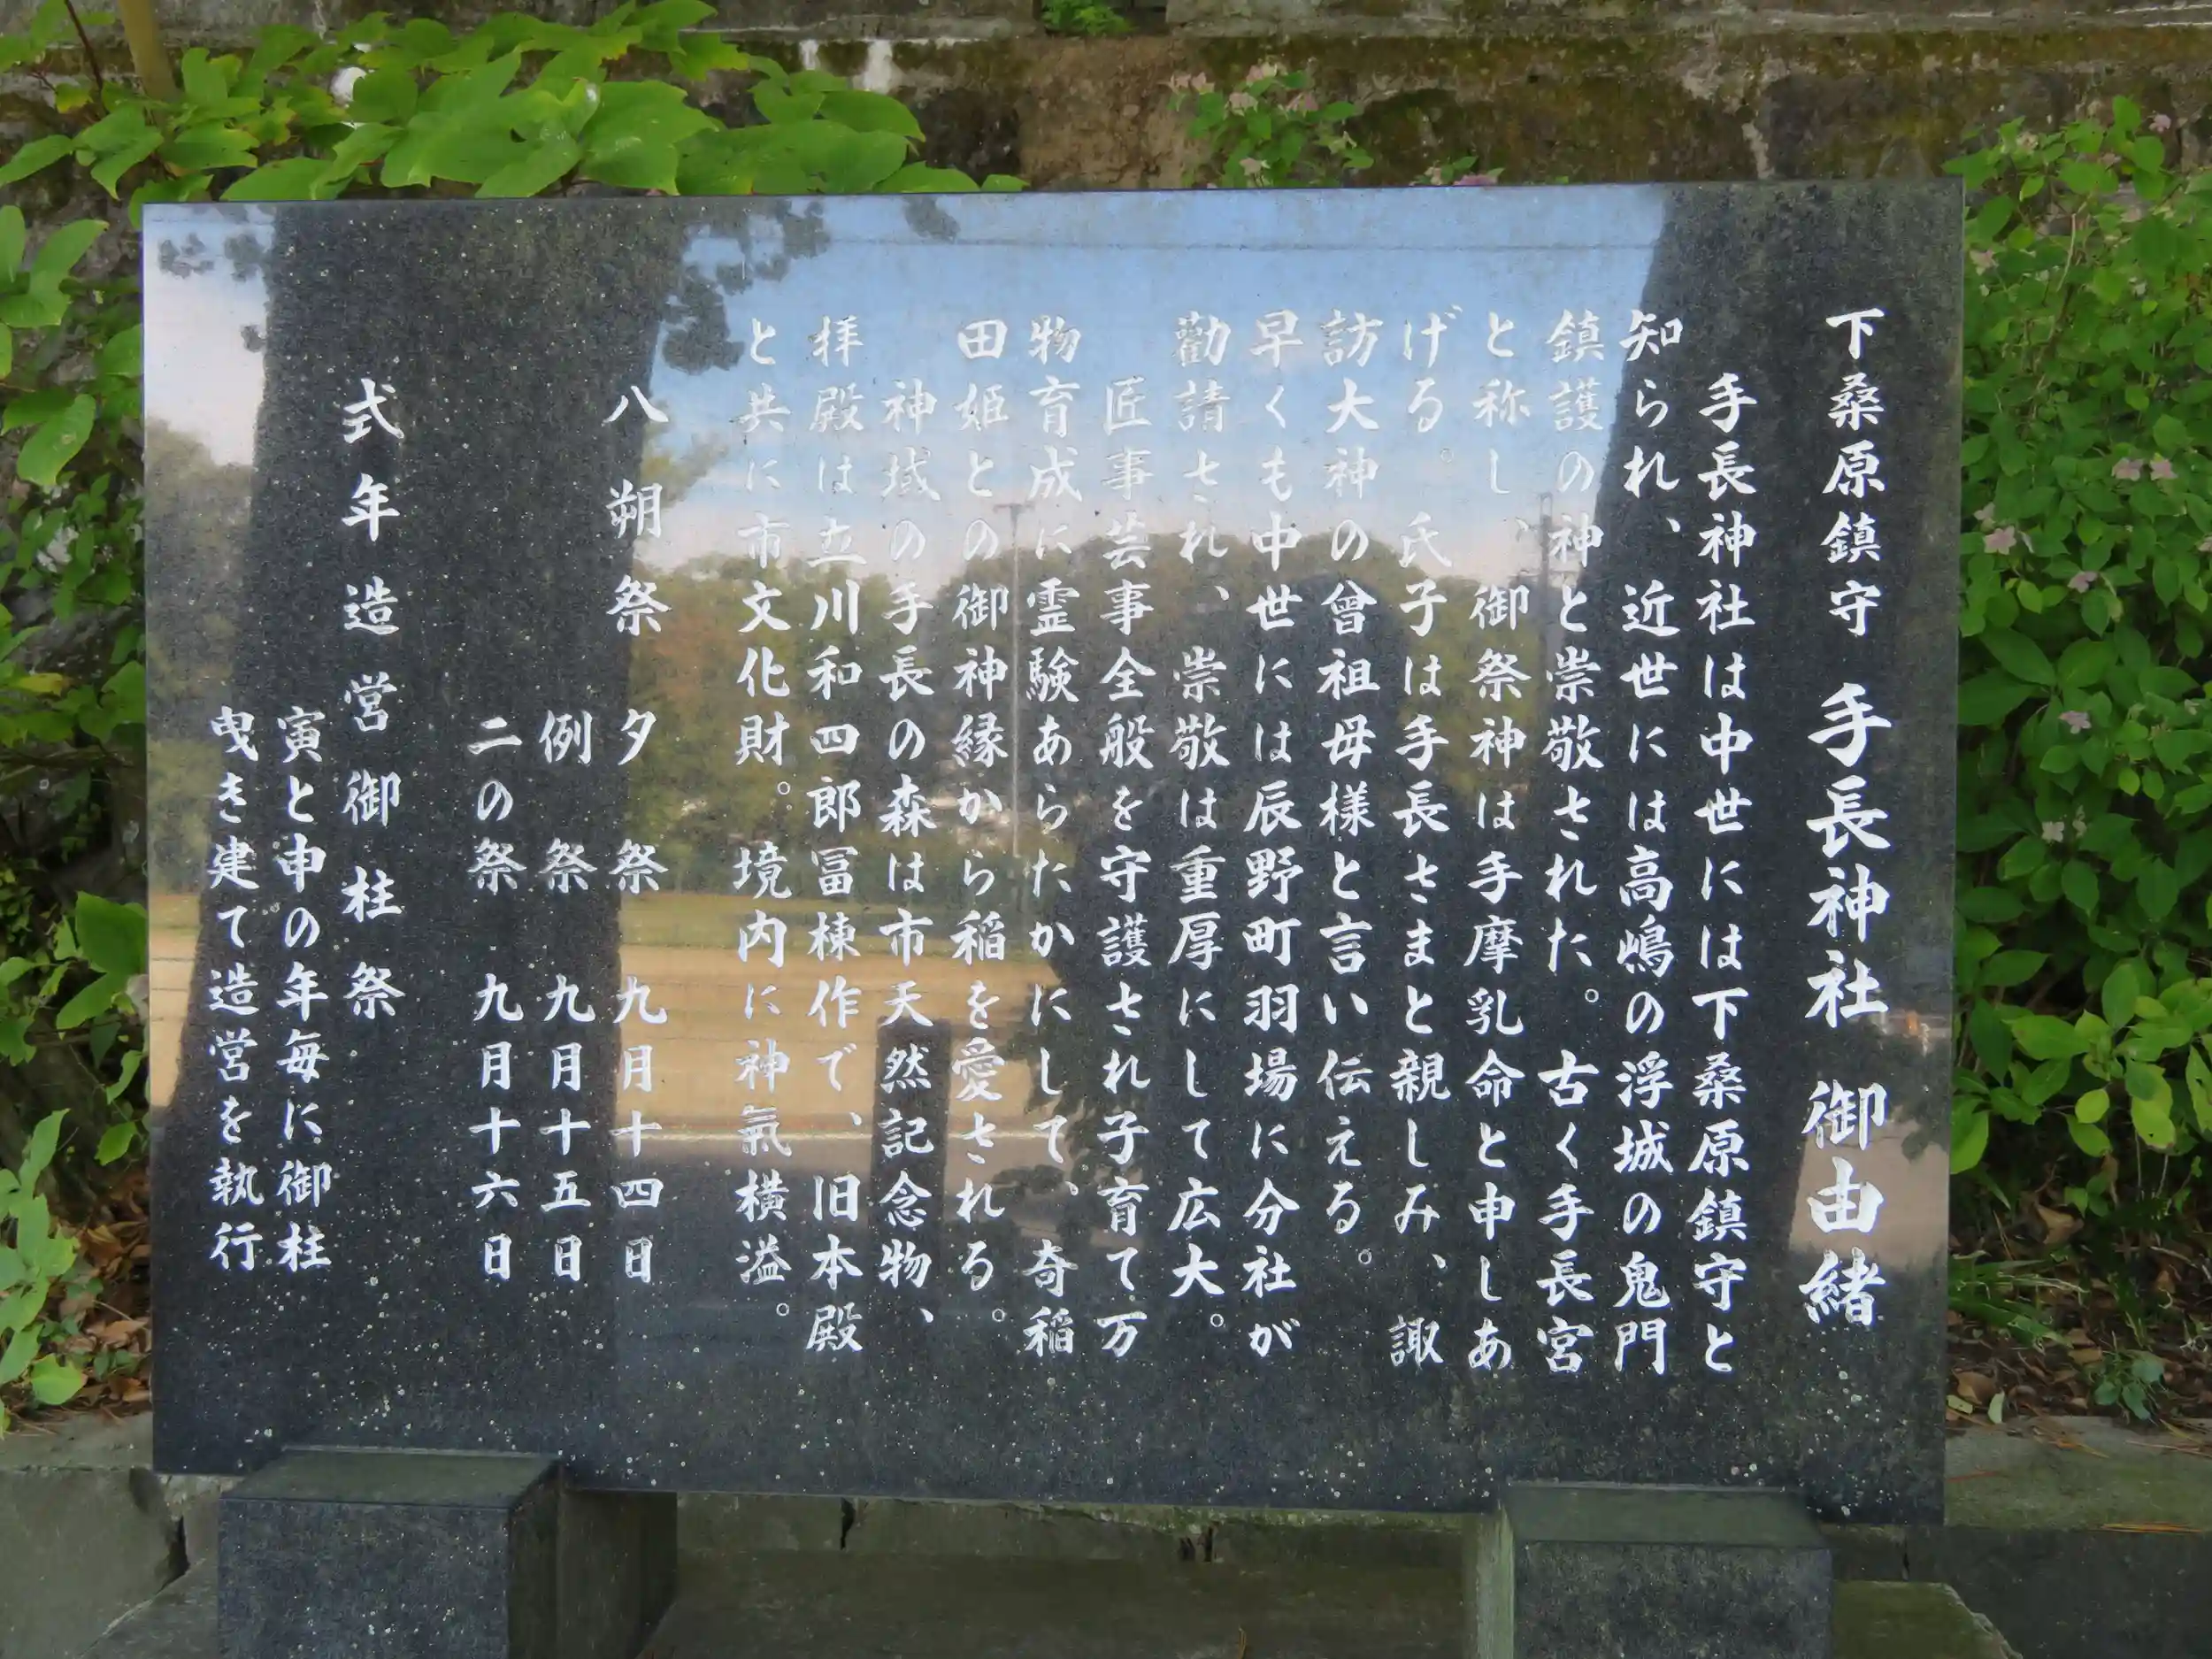 下桑原鎮守　手長神社　御由緒
手長神社は中世には下桑原鎮守と
知られ、近世には高嶋の浮城の鬼門
鎮護の神と崇敬された。古く手長宮
と称し、御祭神は手摩乳命と申しあ
げる。氏子は手長さまと親しみ、諏
訪大神の曾祖母様と言い伝える。
早くも中世には辰野町羽場に分社が
勸請され、崇敬は重厚にして広大。
匠事芸事全般を守護され子育て万
物育成に霊験あらたかにして、奇稲
田姫との御神縁から稲を愛される。
神域の手長の森は市天然記念物、
拝殿は立川和四郎冨棟作で、旧本殿
と共に市文化財。境内に神氣横溢。
八朔祭　夕祭　九月十四日
例祭　九月十五日
二の祭　九月十六日
式年造営御柱祭
寅と申の年毎に御柱
曳き建て造営を執行